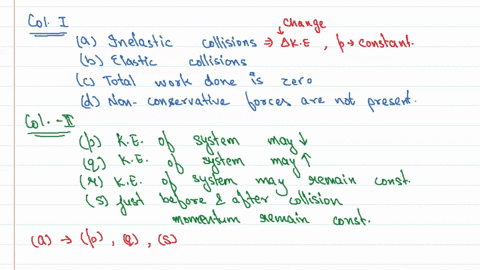 Col. I
change
(a) Inelastic collisions ⇒ ΔK.E , p → constant.
(b) Elastic collisions
(c) Total work done is zero
(d) Non-conservative forces are not present.
Col. - II
(p) K.E. of system may ↓
(q) K.E. of system may ↑
(r) K.E. of system may remain const.
(s) Just before & after collision
momentum remain const.
(a) → (p) , (q) , (s)